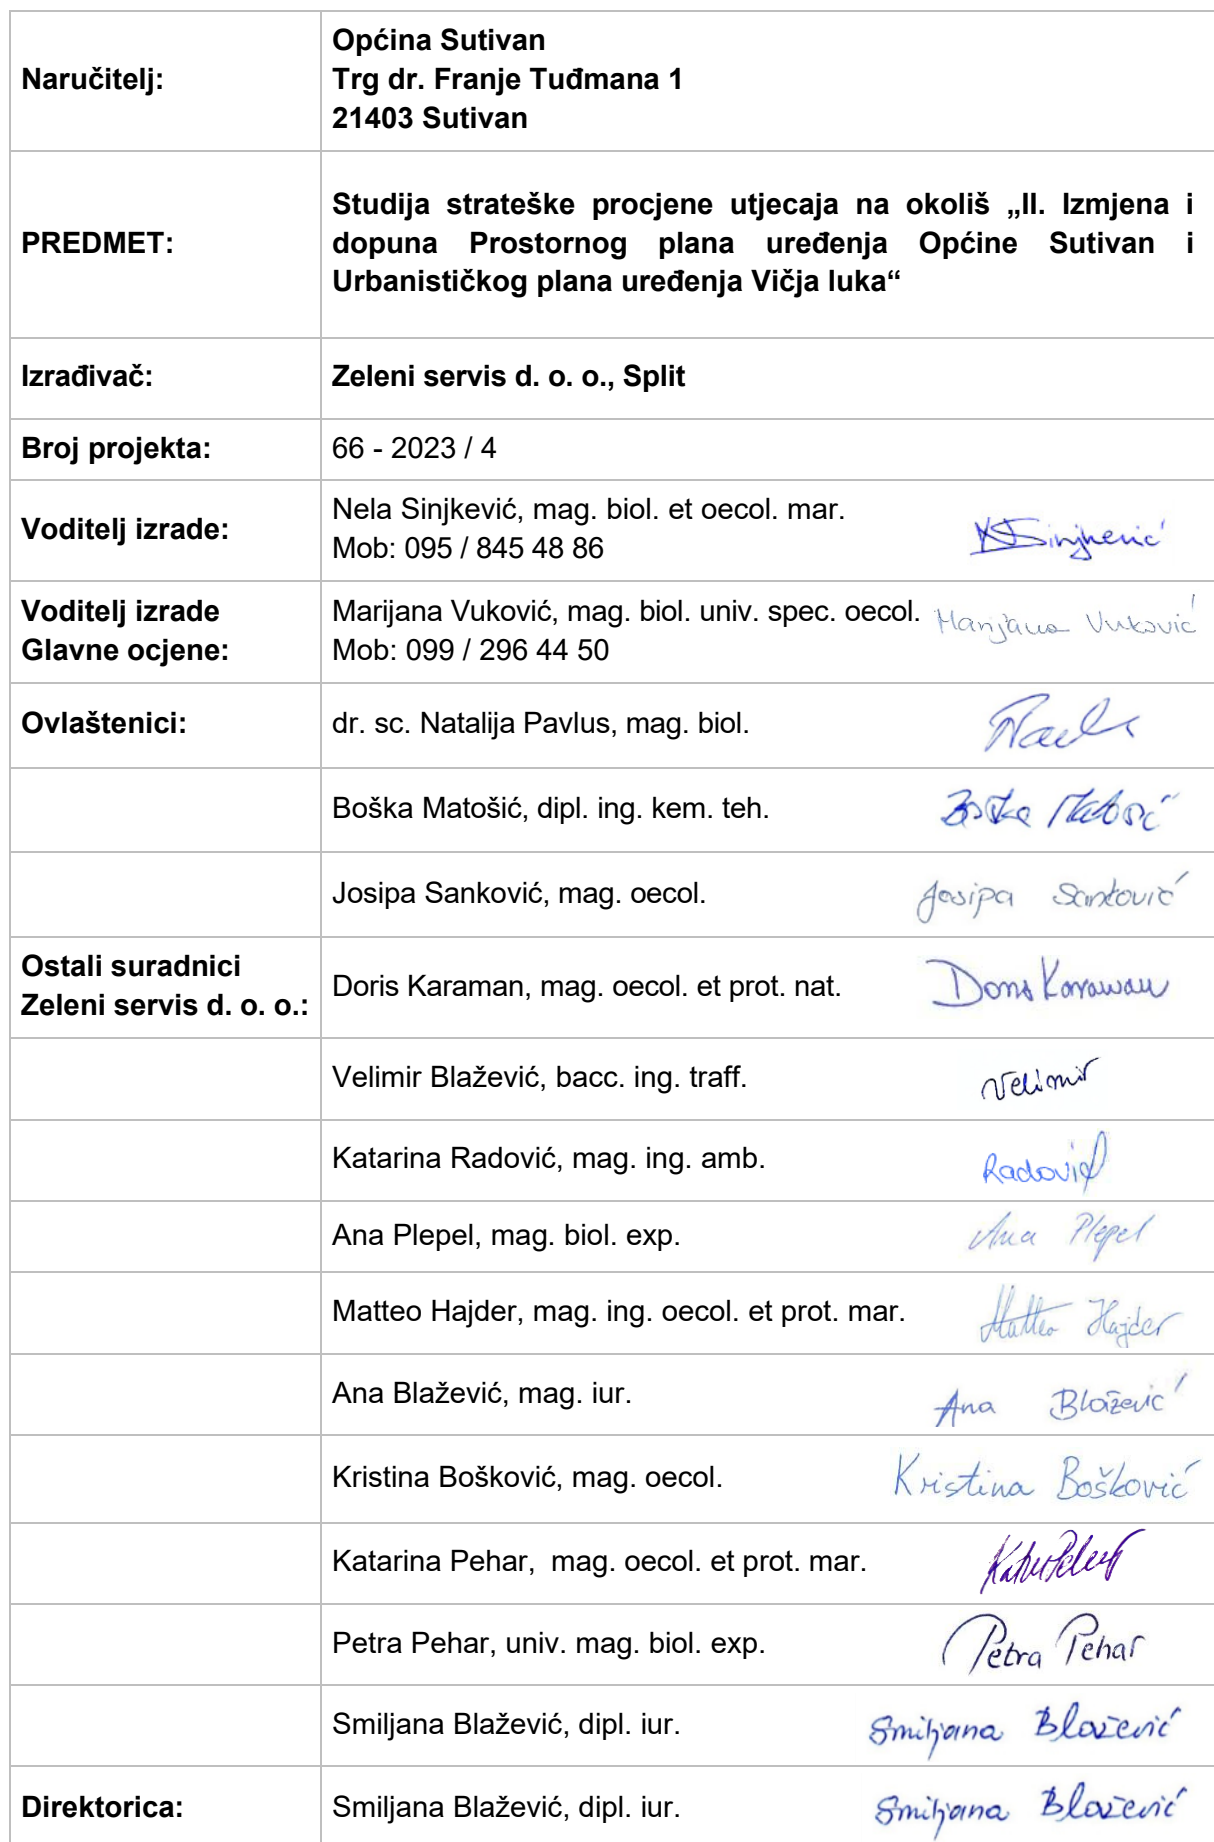 Naručitelj:
Općina Sutivan
Trg dr. Franje Tuđmana 1
21403 Sutivan
PREDMET:
Studija strateške procjene utjecaja na okoliš „II. Izmjena i
dopuna Prostornog plana uređenja Općine Sutivan i
Urbanističkog plana uređenja Vičja luka“
Izrađivač:
Zeleni servis d. o. o., Split
Broj projekta:
66 - 2023 / 4
Voditelj izrade:
Nela Sinjkević, mag. biol. et oecol. mar.
Mob: 095 / 845 48 86
Sinjkević
Voditelj izrade
Glavne ocjene:
Marijana Vuković, mag. biol. univ. spec. oecol.
Mob: 099 / 296 44 50
Marijana Vuković
Ovlaštenici:
dr. sc. Natalija Pavlus, mag. biol.
Boška Matošić, dipl. ing. kem. teh.
Boška Matošić
Josipa Sanković, mag. oecol.
Josipa Sanković
Ostali suradnici
Zeleni servis d. o. o.:
Doris Karaman, mag. oecol. et prot. nat.
Doris Karaman
Velimir Blažević, bacc. ing. traff.
Velimir
Katarina Radović, mag. ing. amb.
Radović
Ana Plepel, mag. biol. exp.
Ana Plepel
Matteo Hajder, mag. ing. oecol. et prot. mar.
Matteo Hajder
Ana Blažević, mag. iur.
Ana Blažević
Kristina Bošković, mag. oecol.
Kristina Bošković
Katarina Pehar, mag. oecol. et prot. mar.
Petra Pehar, univ. mag. biol. exp.
Petra Pehar
Smiljana Blažević, dipl. iur.
Smiljana Blažević
Direktorica:
Smiljana Blažević, dipl. iur.
Smiljana Blažević